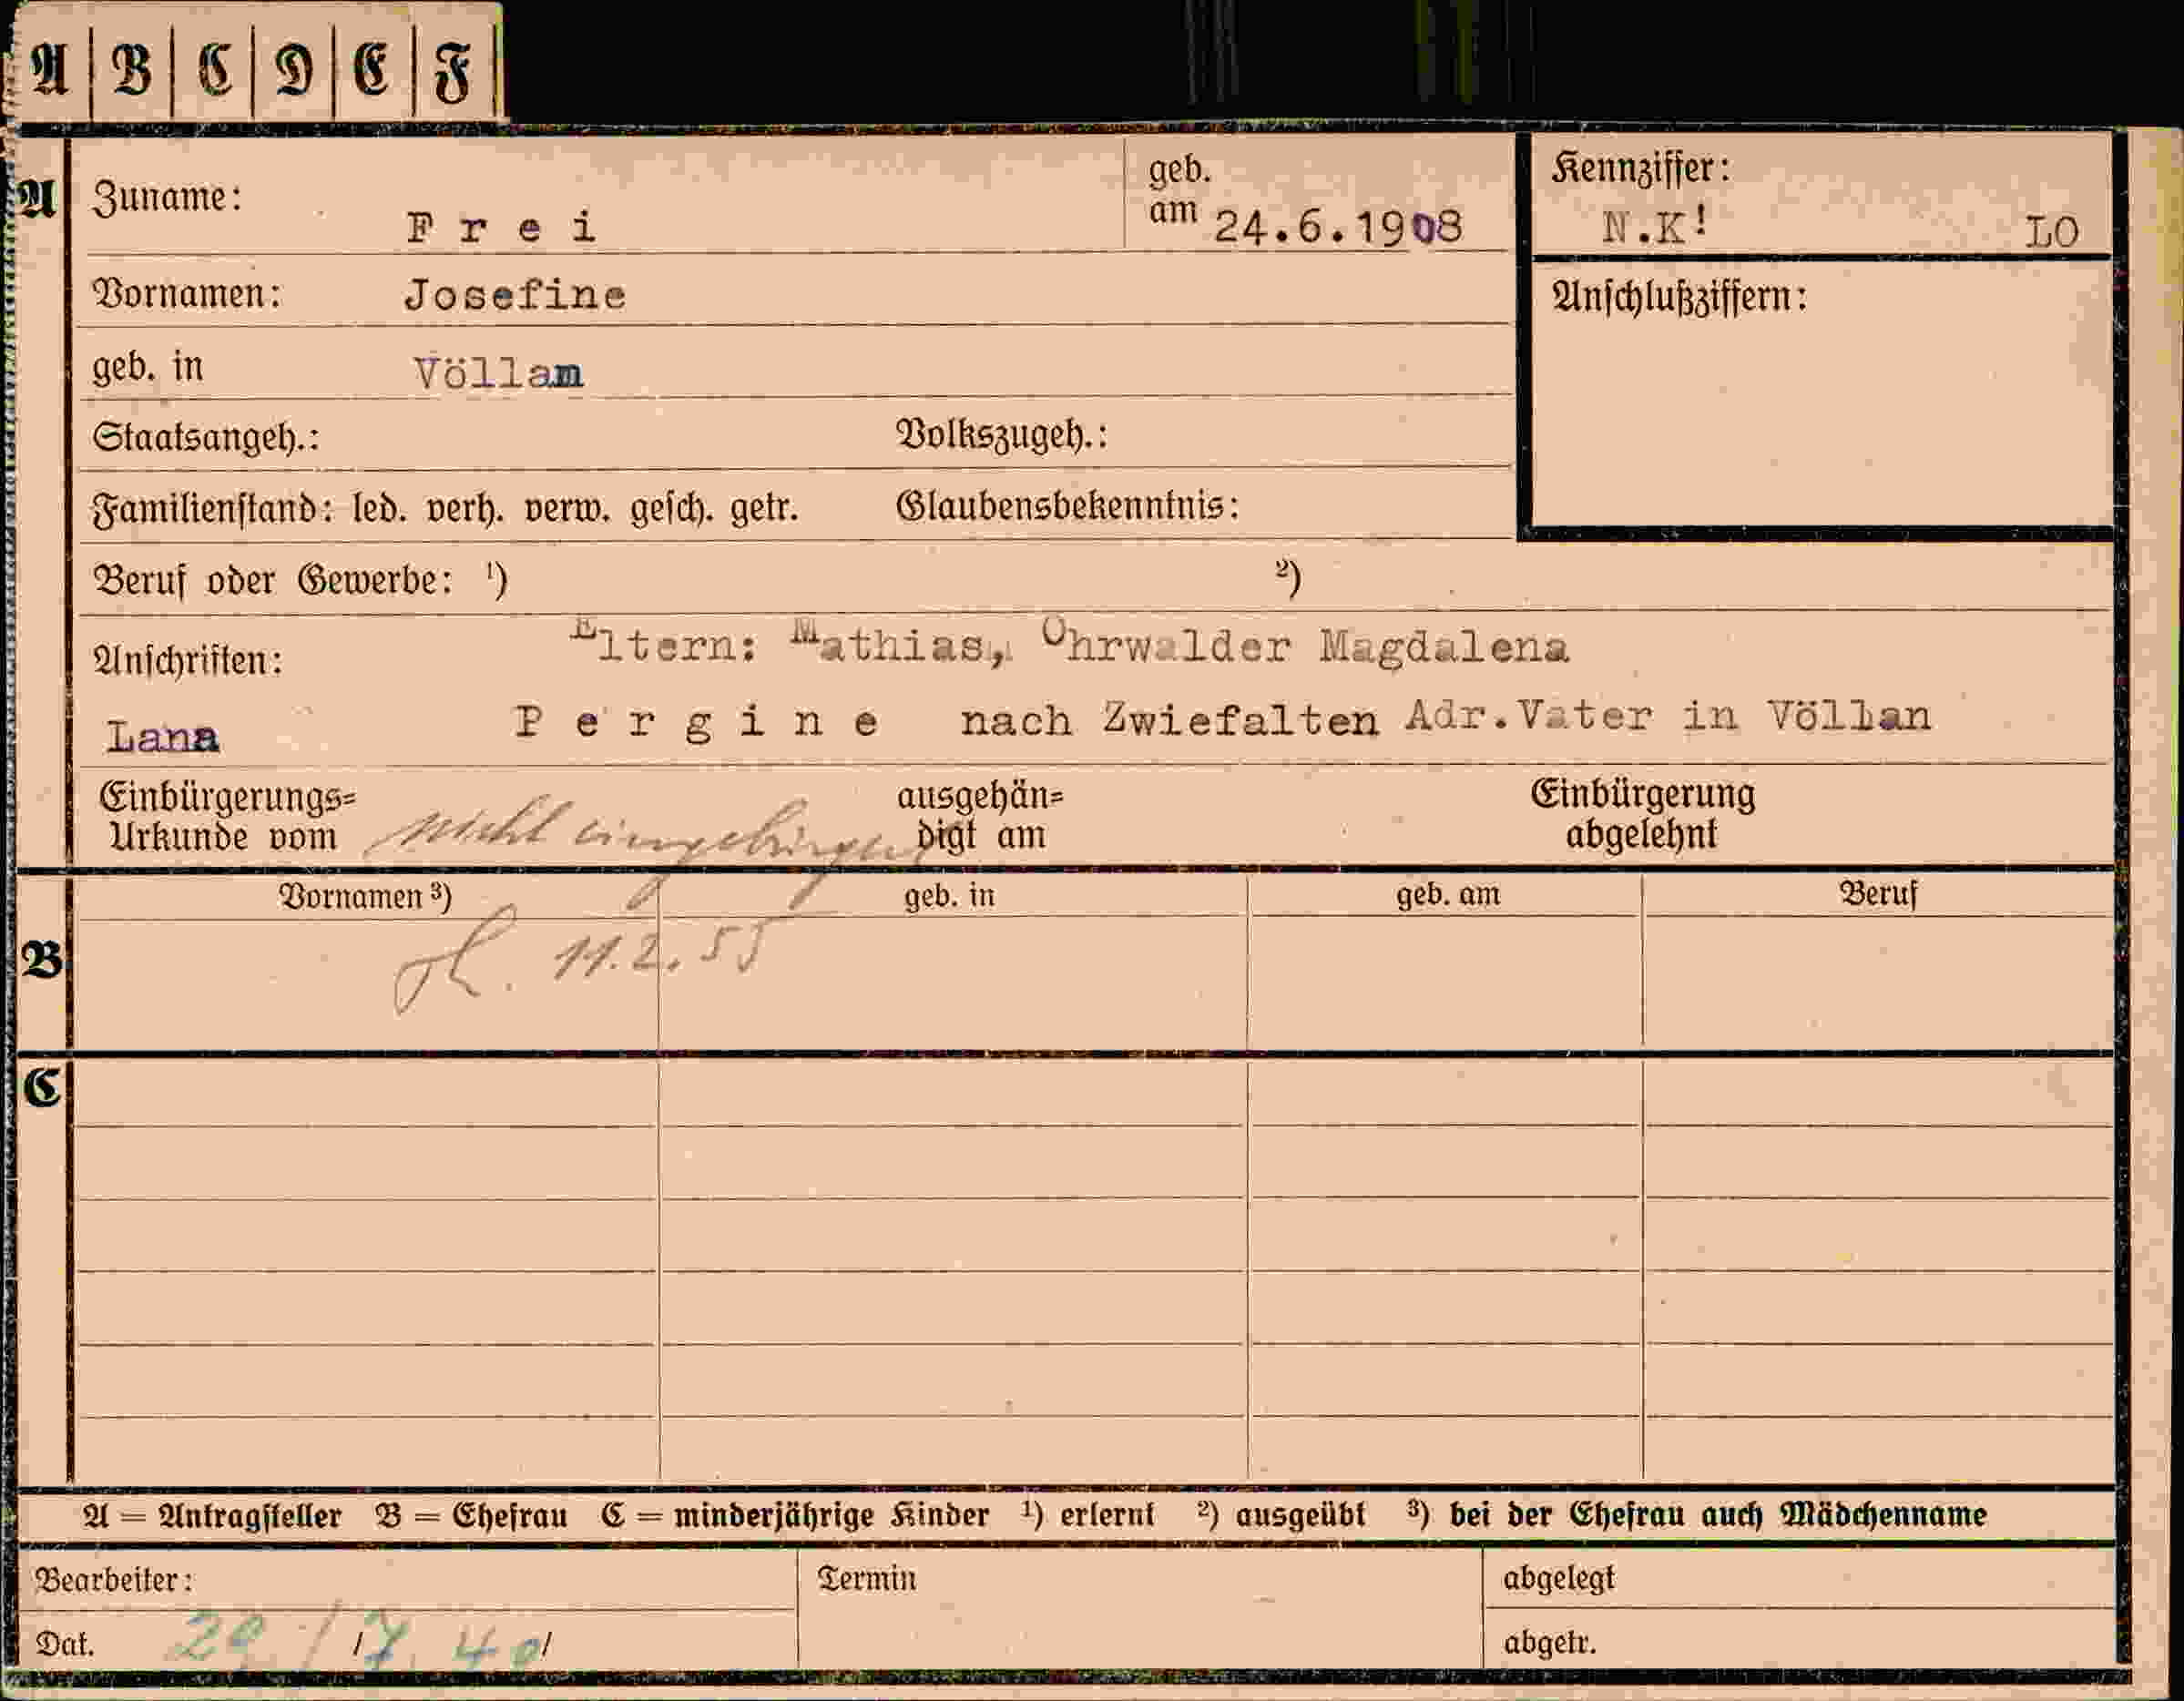 A B C D E F
A Zuname: Frei geb. am 24.6.1908 Kennziffer: N.K! LO
Vornamen: Josefine Anschlußziffern:
geb. in Völlan
Staatsangeh.: Volkszugeh.:
Familienstand: led. verh. verw. gesch. getr. Glaubensbekenntnis:
Beruf oder Gewerbe: ¹) ²)
Anschriften: Eltern: Mathias, Ohrwalder Magdalena
Lana Pergine nach Zwiefalten Adr.Vater in Völlan
Einbürgerungs= ausgehän= Einbürgerung
Urkunde vom nicht eingebürgert digt am abgelehnt
Vornamen ³) geb. in geb. am Beruf
B 11.2.55
C
A = Antragsteller B = Ehefrau C = minderjährige Kinder ¹) erlernt ²) ausgeübt ³) bei der Ehefrau auch Mädchenname
Bearbeiter: Termin abgelegt
Dat. 29/7.40/ abgetr.